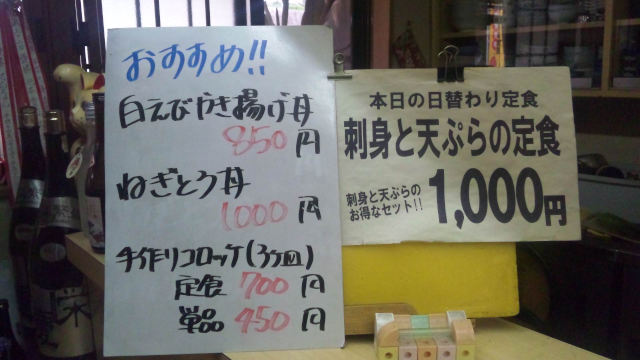 おすすめ!!
白えびかき揚げ丼
850円
ねぎとろ丼
1000円
手作りコロッケ(3ヶ皿)
定食 700円
単品 450円
本日の日替わり定食
刺身と天ぷらの定食
刺身と天ぷらの
お得なセット!!
1,000円